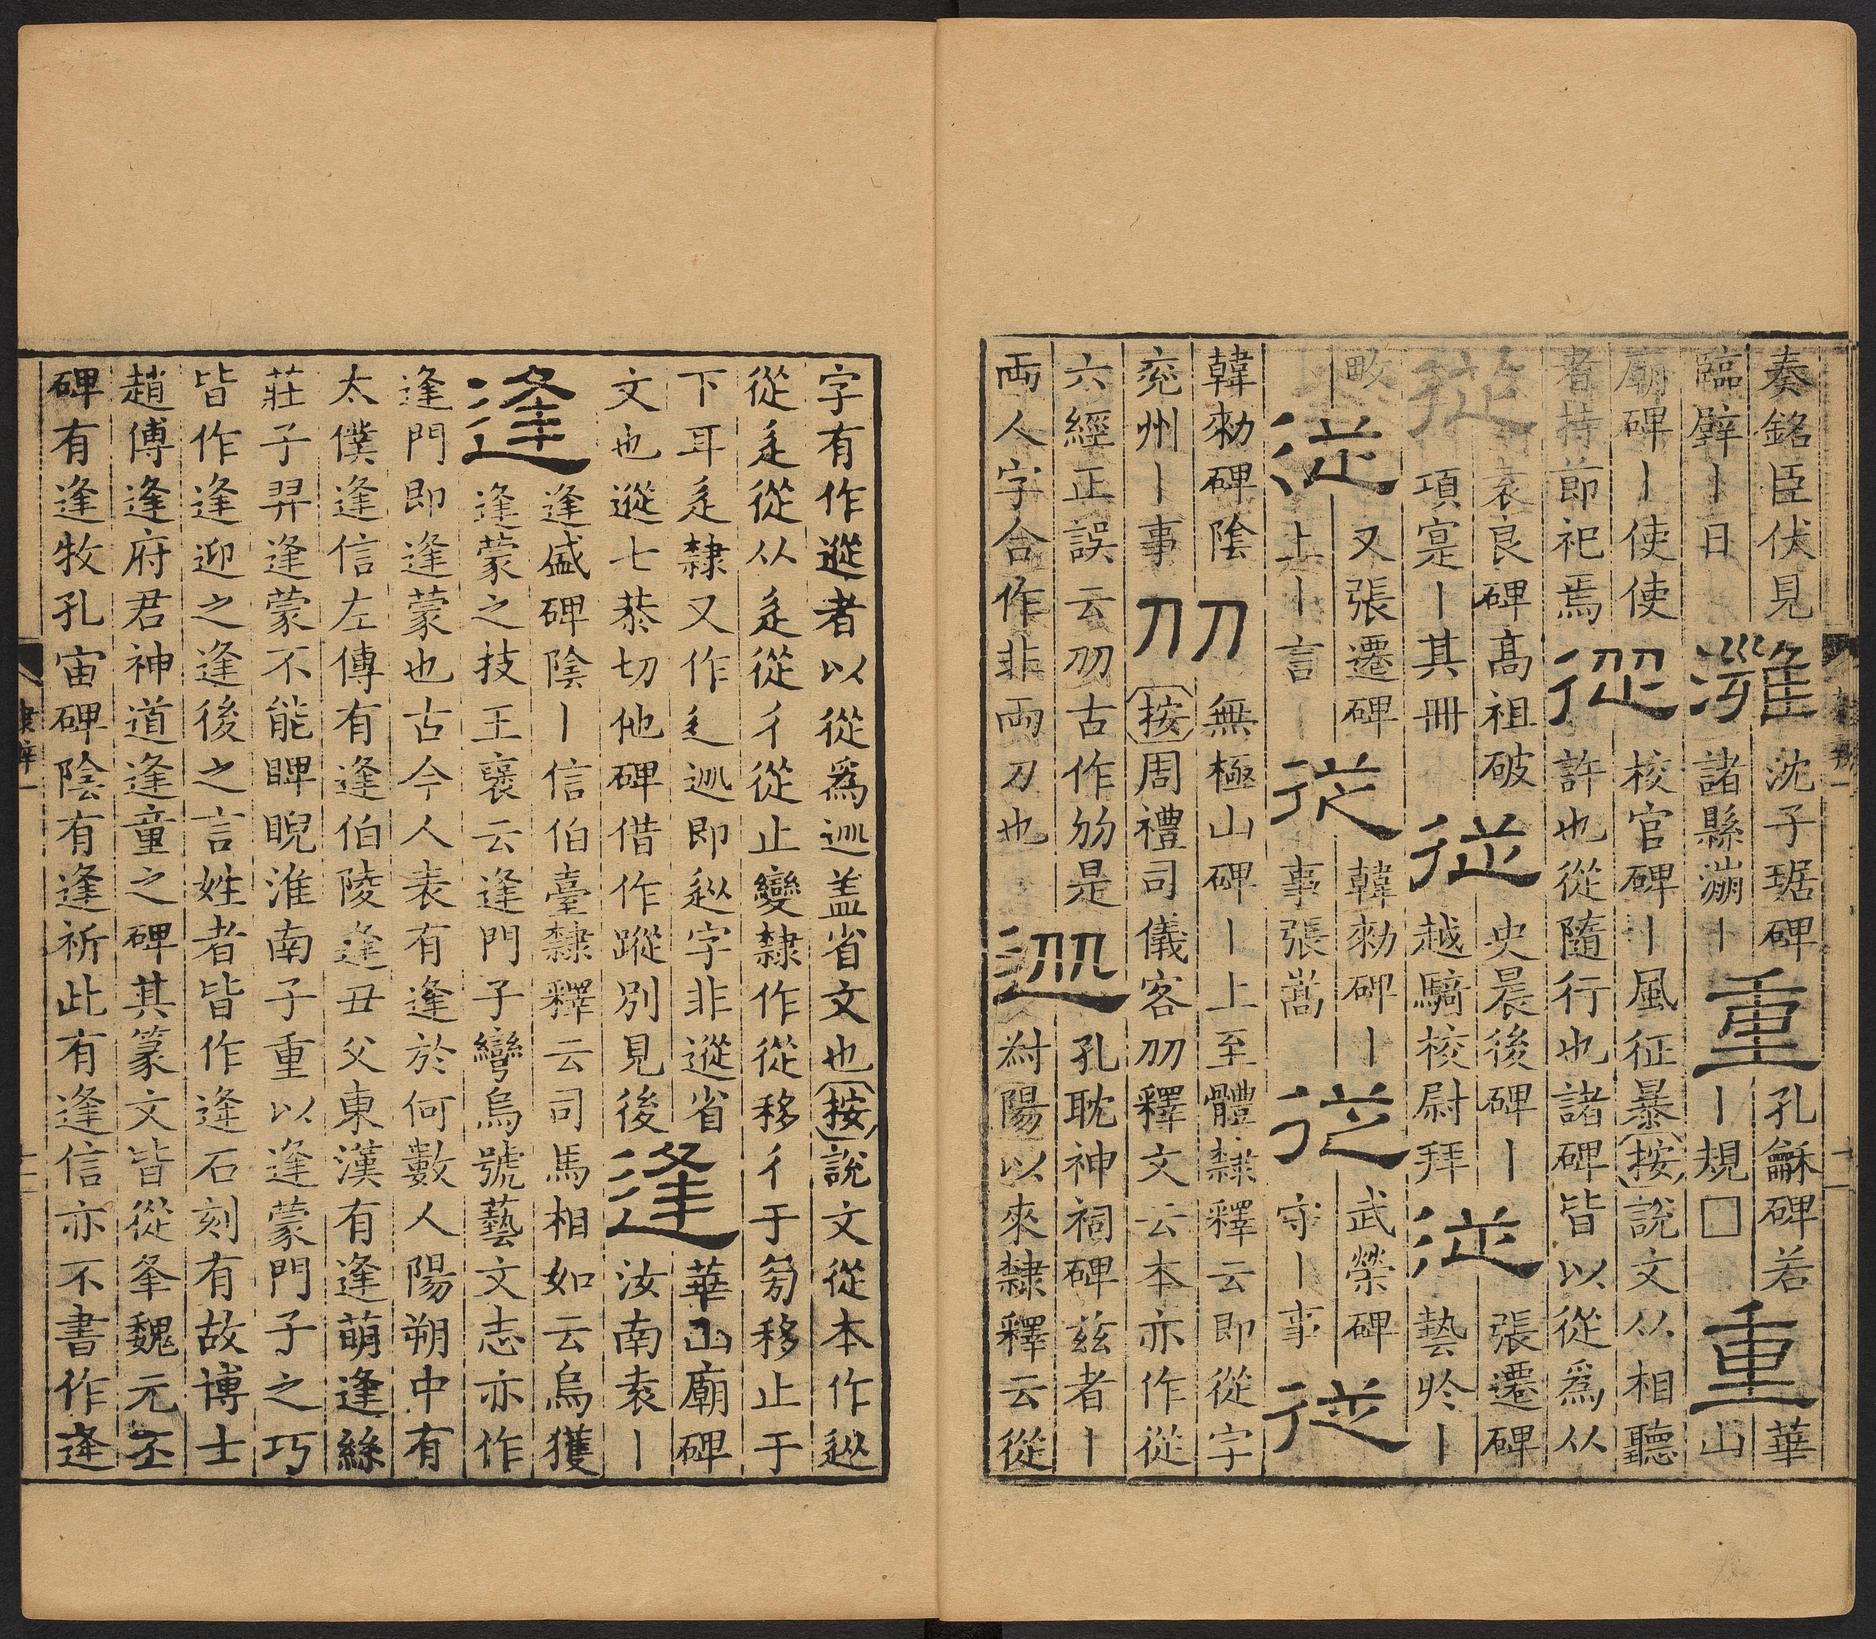 奏銘臣伏見
臨辟丨日
濰
沈子琚碑
諸縣漰丨
重
孔龢碑若
丨規□
重
華
山
廟碑丨使使
者持節祀焉
從
校官碑丨風征暴按說文从相聽
許也從隨行也諸碑皆以從爲从
從
袁良碑高祖破
項寔丨其冊
從
史晨後碑丨
越騎校尉拜
從
張遷碑
藝於丨
畋
從
又張遷碑
上丨言丨
從
韓勑碑丨
事張嵩
從
武榮碑
守丨事
從
韓勑碑陰
兖州丨事
刀刀
無極山碑丨上至體隸釋云即從字
按周禮司儀客刕釋文云本亦作從
六經正誤云刕古作㓞是
両人字合作非両刀也
孔耽神祠碑兹者丨
紂陽以來隸釋云從
字有作䢨者以從爲䢐盖省文也按說文從本作䢐
從辵從从辵從彳從止變隸作從移彳于㫄移止于
下耳辵隸又作辶䢐即䢐字非䢨省
文也䢨七恭切他碑借作蹤別見後
逢
華山廟碑
汝南袁丨
逢盛碑陰丨信伯臺隸釋云司馬相如云烏獲
逢
逢蒙之技王襃云逢門子彎烏號藝文志亦作
逢門即逢蒙也古今人表有逢於何數人陽朔中有
太僕逢信左傳有逢伯陵逢丑父東漢有逢萌逢絲
莊子羿逢蒙不能睥睨淮南子重以逢蒙門子之巧
皆作逢迎之逢後之言姓者皆作逄石刻有故博士
趙傅逢府君神道逢童之碑其篆文皆從夆魏元丕
碑有逢牧孔宙碑陰有逢祈此有逢信亦不書作逄